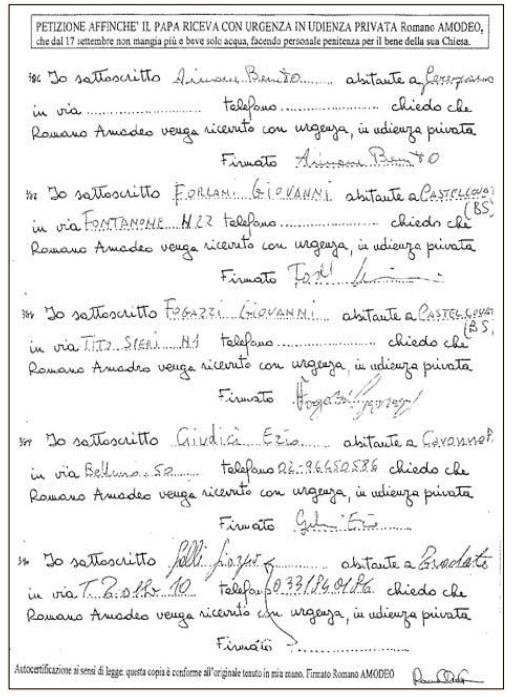 PETIZIONE AFFINCHE' IL PAPA RICEVA CON URGENZA IN UDIENZA PRIVATA Romano AMODEO,
che dal 17 settembre non mangia più e beve solo acqua, facendo personale penitenza per il bene della sua Chiesa.
Io sottoscritto Aimone Benito abitante a
in via telefono chiedo che
Romano Amodeo venga ricevuto con urgenza, in udienza privata
Firmato Aimone Benito
Io sottoscritto FORLANI GIOVANNI abitante a CASTELCOVATI
(BS)
in via FONTANONE N 22 telefono chiedo che
Romano Amodeo venga ricevuto con urgenza, in udienza privata
Firmato
Io sottoscritto FOGAZZI GIOVANNI abitante a CASTELCOVATI
(BS)
in via TITO SPERI N1 telefono chiedo che
Romano Amodeo venga ricevuto con urgenza, in udienza privata
Firmato Fogazzi Giovanni
Io sottoscritto Giudici Ezio abitante a Caronno P.
in via Belluno 50 telefono 02-96450586 chiedo che
Romano Amodeo venga ricevuto con urgenza, in udienza privata
Firmato
Io sottoscritto abitante a Tradate
in via telefono chiedo che
Romano Amodeo venga ricevuto con urgenza, in udienza privata
Firmato
Autocertificazione ai sensi di legge: questa copia è conforme all'originale tenuto in mia mano. Firmato Romano AMODEO